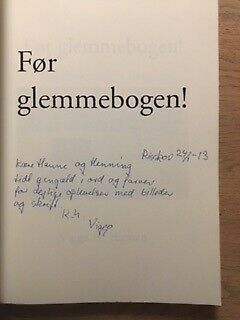 Før
glemmebogen!
Risskov 24/1-13
Kære Hanne og Henning
lidt gengæld i ord og farver
for dejlige oplevelser med billeder
og skrift
K.h.
Viggo